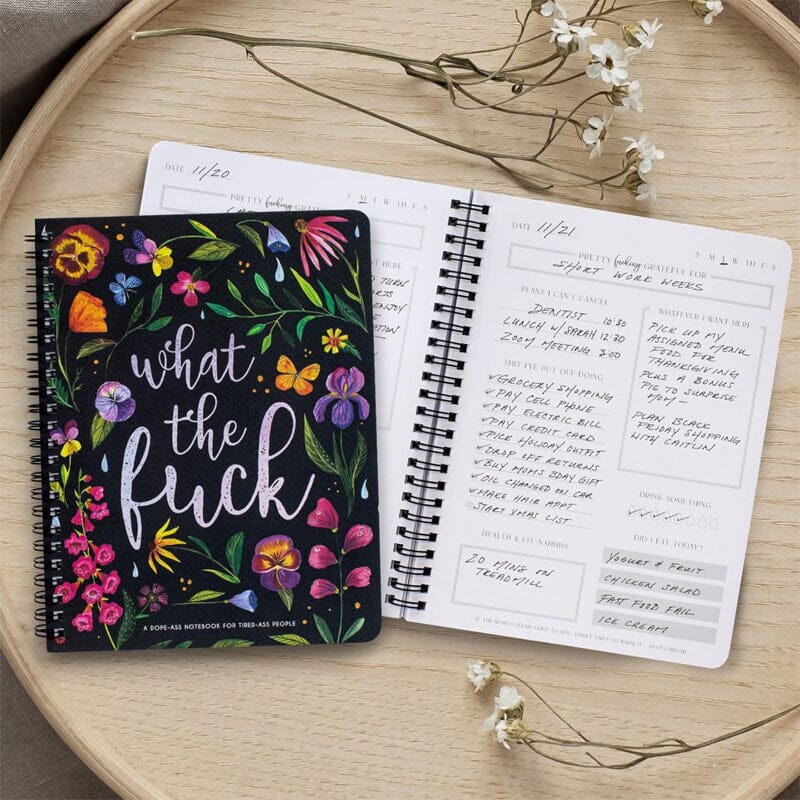 what
the
fuck
A DOPE-ASS NOTEBOOK FOR TIRED-ASS PEOPLE
DATE 11/20
S M T W TH F S
PRETTY fucking GRATEFUL
HERE
TURN
ENJOY
DATE 11/21
S M T W TH F S
PRETTY fucking GRATEFUL FOR
SHORT WORK WEEKS
PLANS I CAN'T CANCEL
DENTIST 10:30
LUNCH W/ SARAH 12:30
ZOOM MEETING 3:00
SHIT I'VE PUT OFF DOING
✓GROCERY SHOPPING
✓PAY CELL PHONE
✓PAY ELECTRIC BILL
✓PAY CREDIT CARD
✓PICK HOLIDAY OUTFIT
✓DROP OFF RETURNS
✓BUY MOMS BDAY GIFT
✓OIL CHANGED ON CAR
✓MAKE HAIR APPT
START XMAS LIST
HEALTH & FIT-NAHHHS
20 MINS ON
TREADMILL
WHATEVER I WANT HERE
PICK UP MY
ASSIGNED MENU
FOOD FOR
THANKSGIVING
PLUS A BONUS
PIE TO SURPRISE
MOM
PLAN BLACK
FRIDAY SHOPPING
WITH CAITLIN
DRINK SOMETHING
DID I EAT TODAY?
YOGURT & FRUIT
CHICKEN SALAD
FAST FOOD FAIL
ICE CREAM
THE WORLD SEEMS COLD TO YOU, KINDLE FIRES TO WARM IT. - LUCY LARCOM